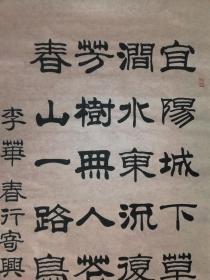 宜陽城下草
澗水東流復
芳樹無人花
春山一路鳥
李華春行寄興